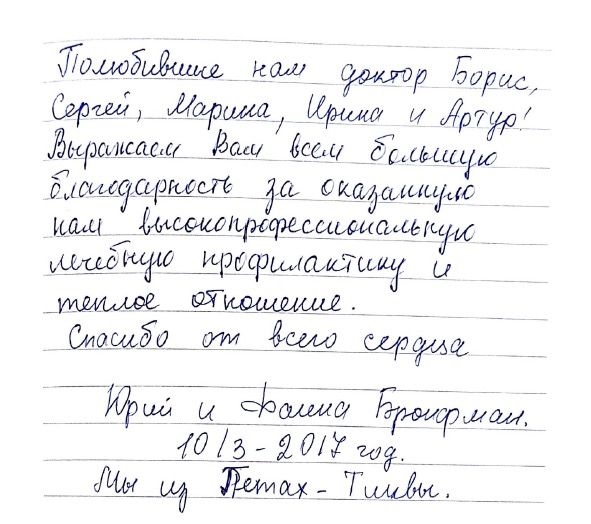 Полюбившие нам доктор Борис,
Сергей, Марина, Ирина и Артур!
Выражаем Вам всем большую
благодарность за оказанную
нам высокопрофессиональную
лечебную профилактику и
теплое отношение.
Спасибо от всего сердца
Юрий и Фаина Бронфман.
10/3-2017 год.
Мы из Петах-Тиквы.